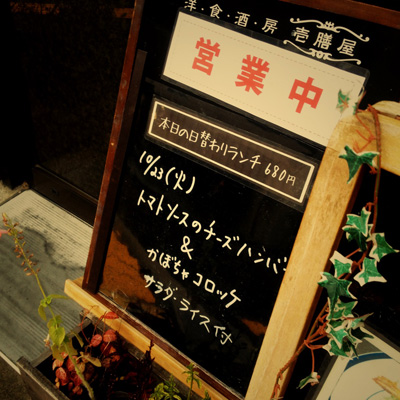 洋・食・酒・房 壱膳屋
営業中
本日の日替わりランチ 680円
10/23(火)
トマトソースのチーズハンバー
&
かぼちゃコロッケ
サラダ・ライス付